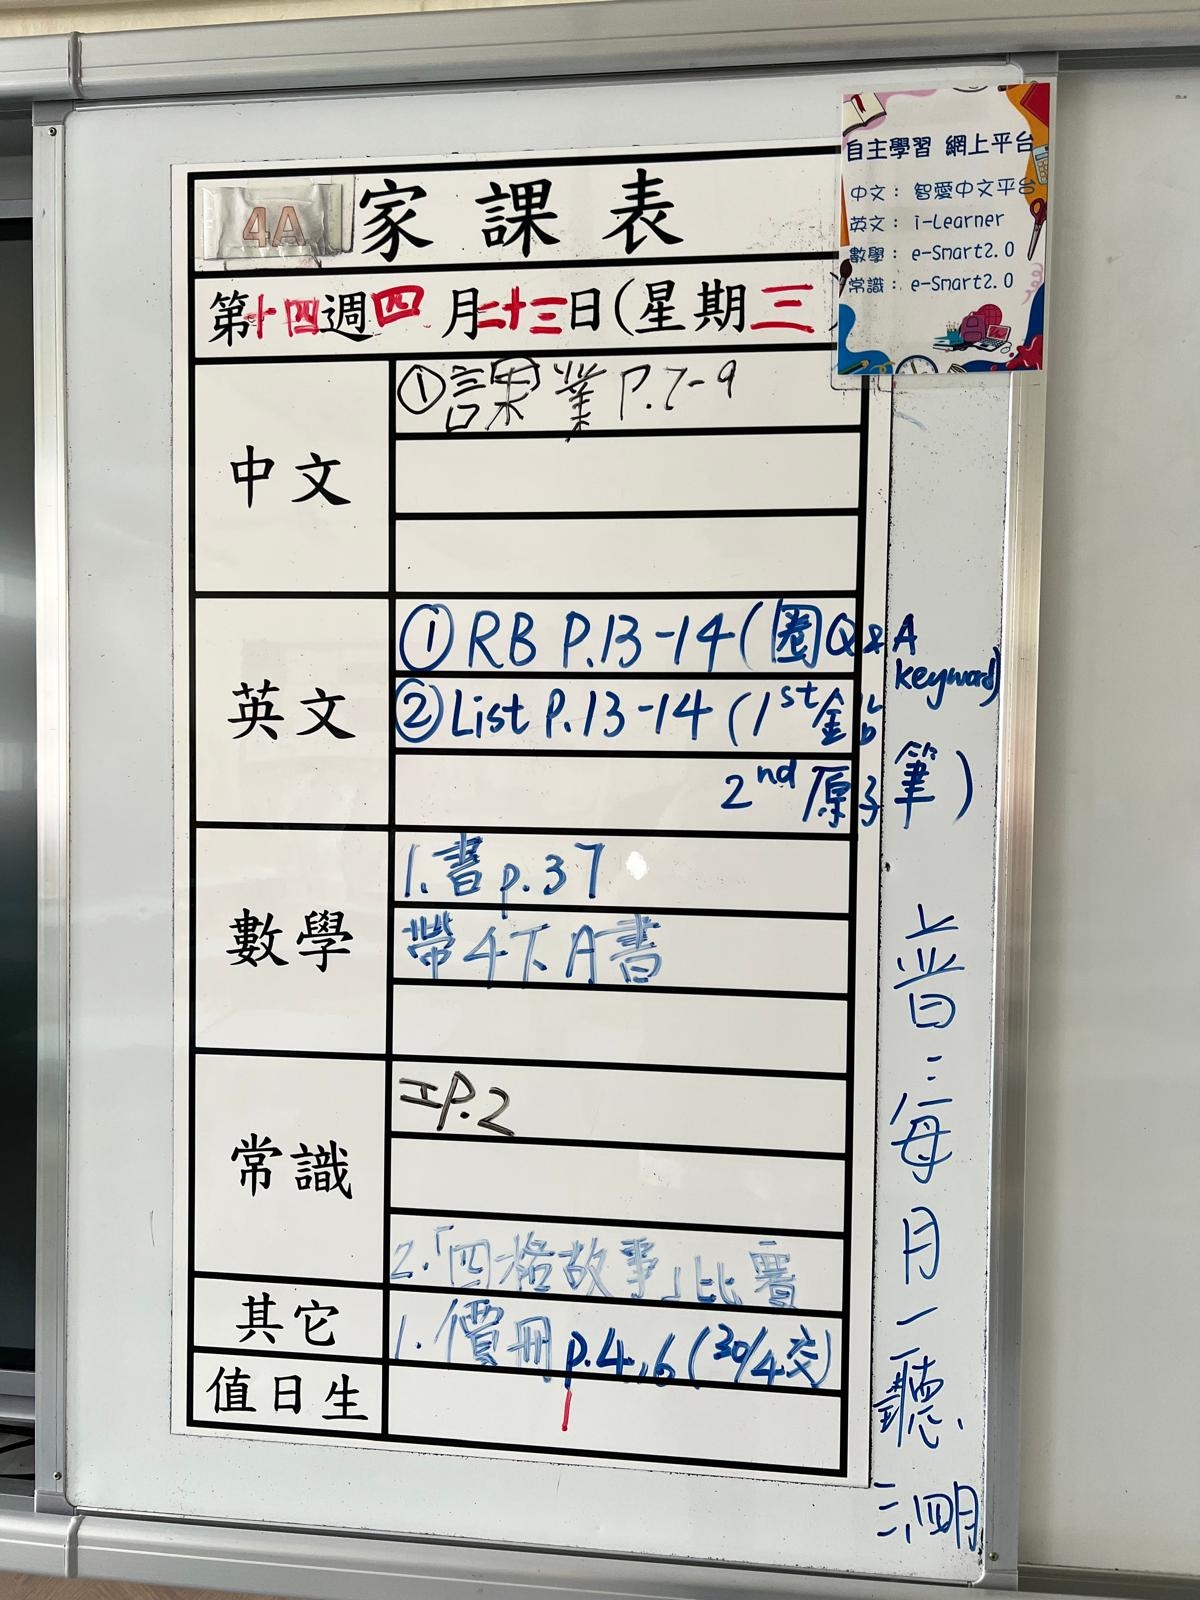 4A 家課表
第十四週四月二十三日(星期三
自主學習 網上平台
中文： 智愛中文平台
英文： i-Learner
數學： e-Smart2.0
常識： e-Smart2.0
中文
①課業P.7-9
英文
①RB P.13-14(圈Q&A keyword)
②List P.13-14 (1st鉛
2nd原子筆)
數學
1.書p.37
帶4下A書
常識
工P.2
2.「四格故事」比賽
其它
1.價冊p.4,6(30/4交)
值日生
1
普三:每月一聽
三,四月